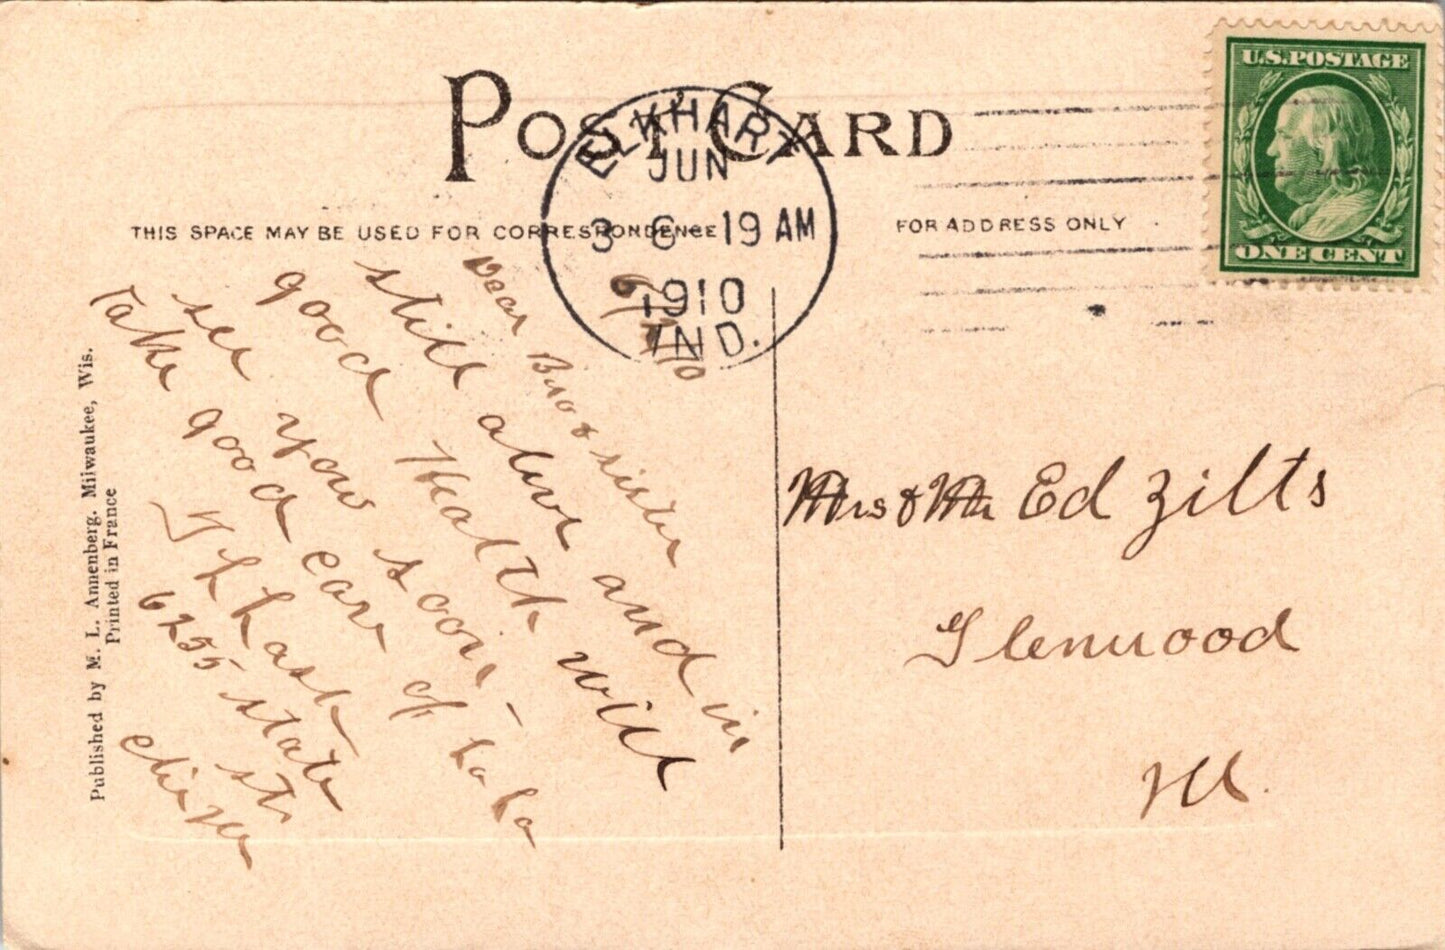 POST CARD
THIS SPACE MAY BE USED FOR CORRESPONDENCE
FOR ADDRESS ONLY
U.S. POSTAGE
ONE CENT
ELKHART
JUN
3 6-19 AM
1910
IND.
Dear Bro & sister
still alive and in
good Health will
see you soon -
Take good care of
6255 state
st
Mrs & Mr Ed Zilts
Glenwood
Ill.
Published by M. L. Annenberg. Milwaukee, Wis.
Printed in France